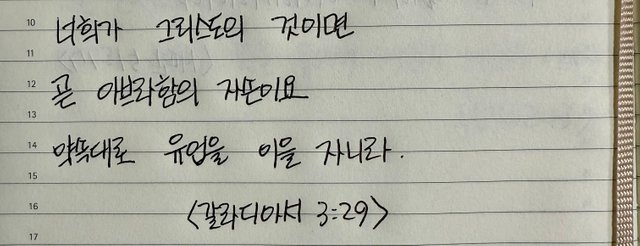 10 너희가 그리스도의 것이면
11
12 곧 아브라함의 자손이요
13
14 약속대로 유업을 이을 자니라.
15
16 <갈라디아서 3:29>
17